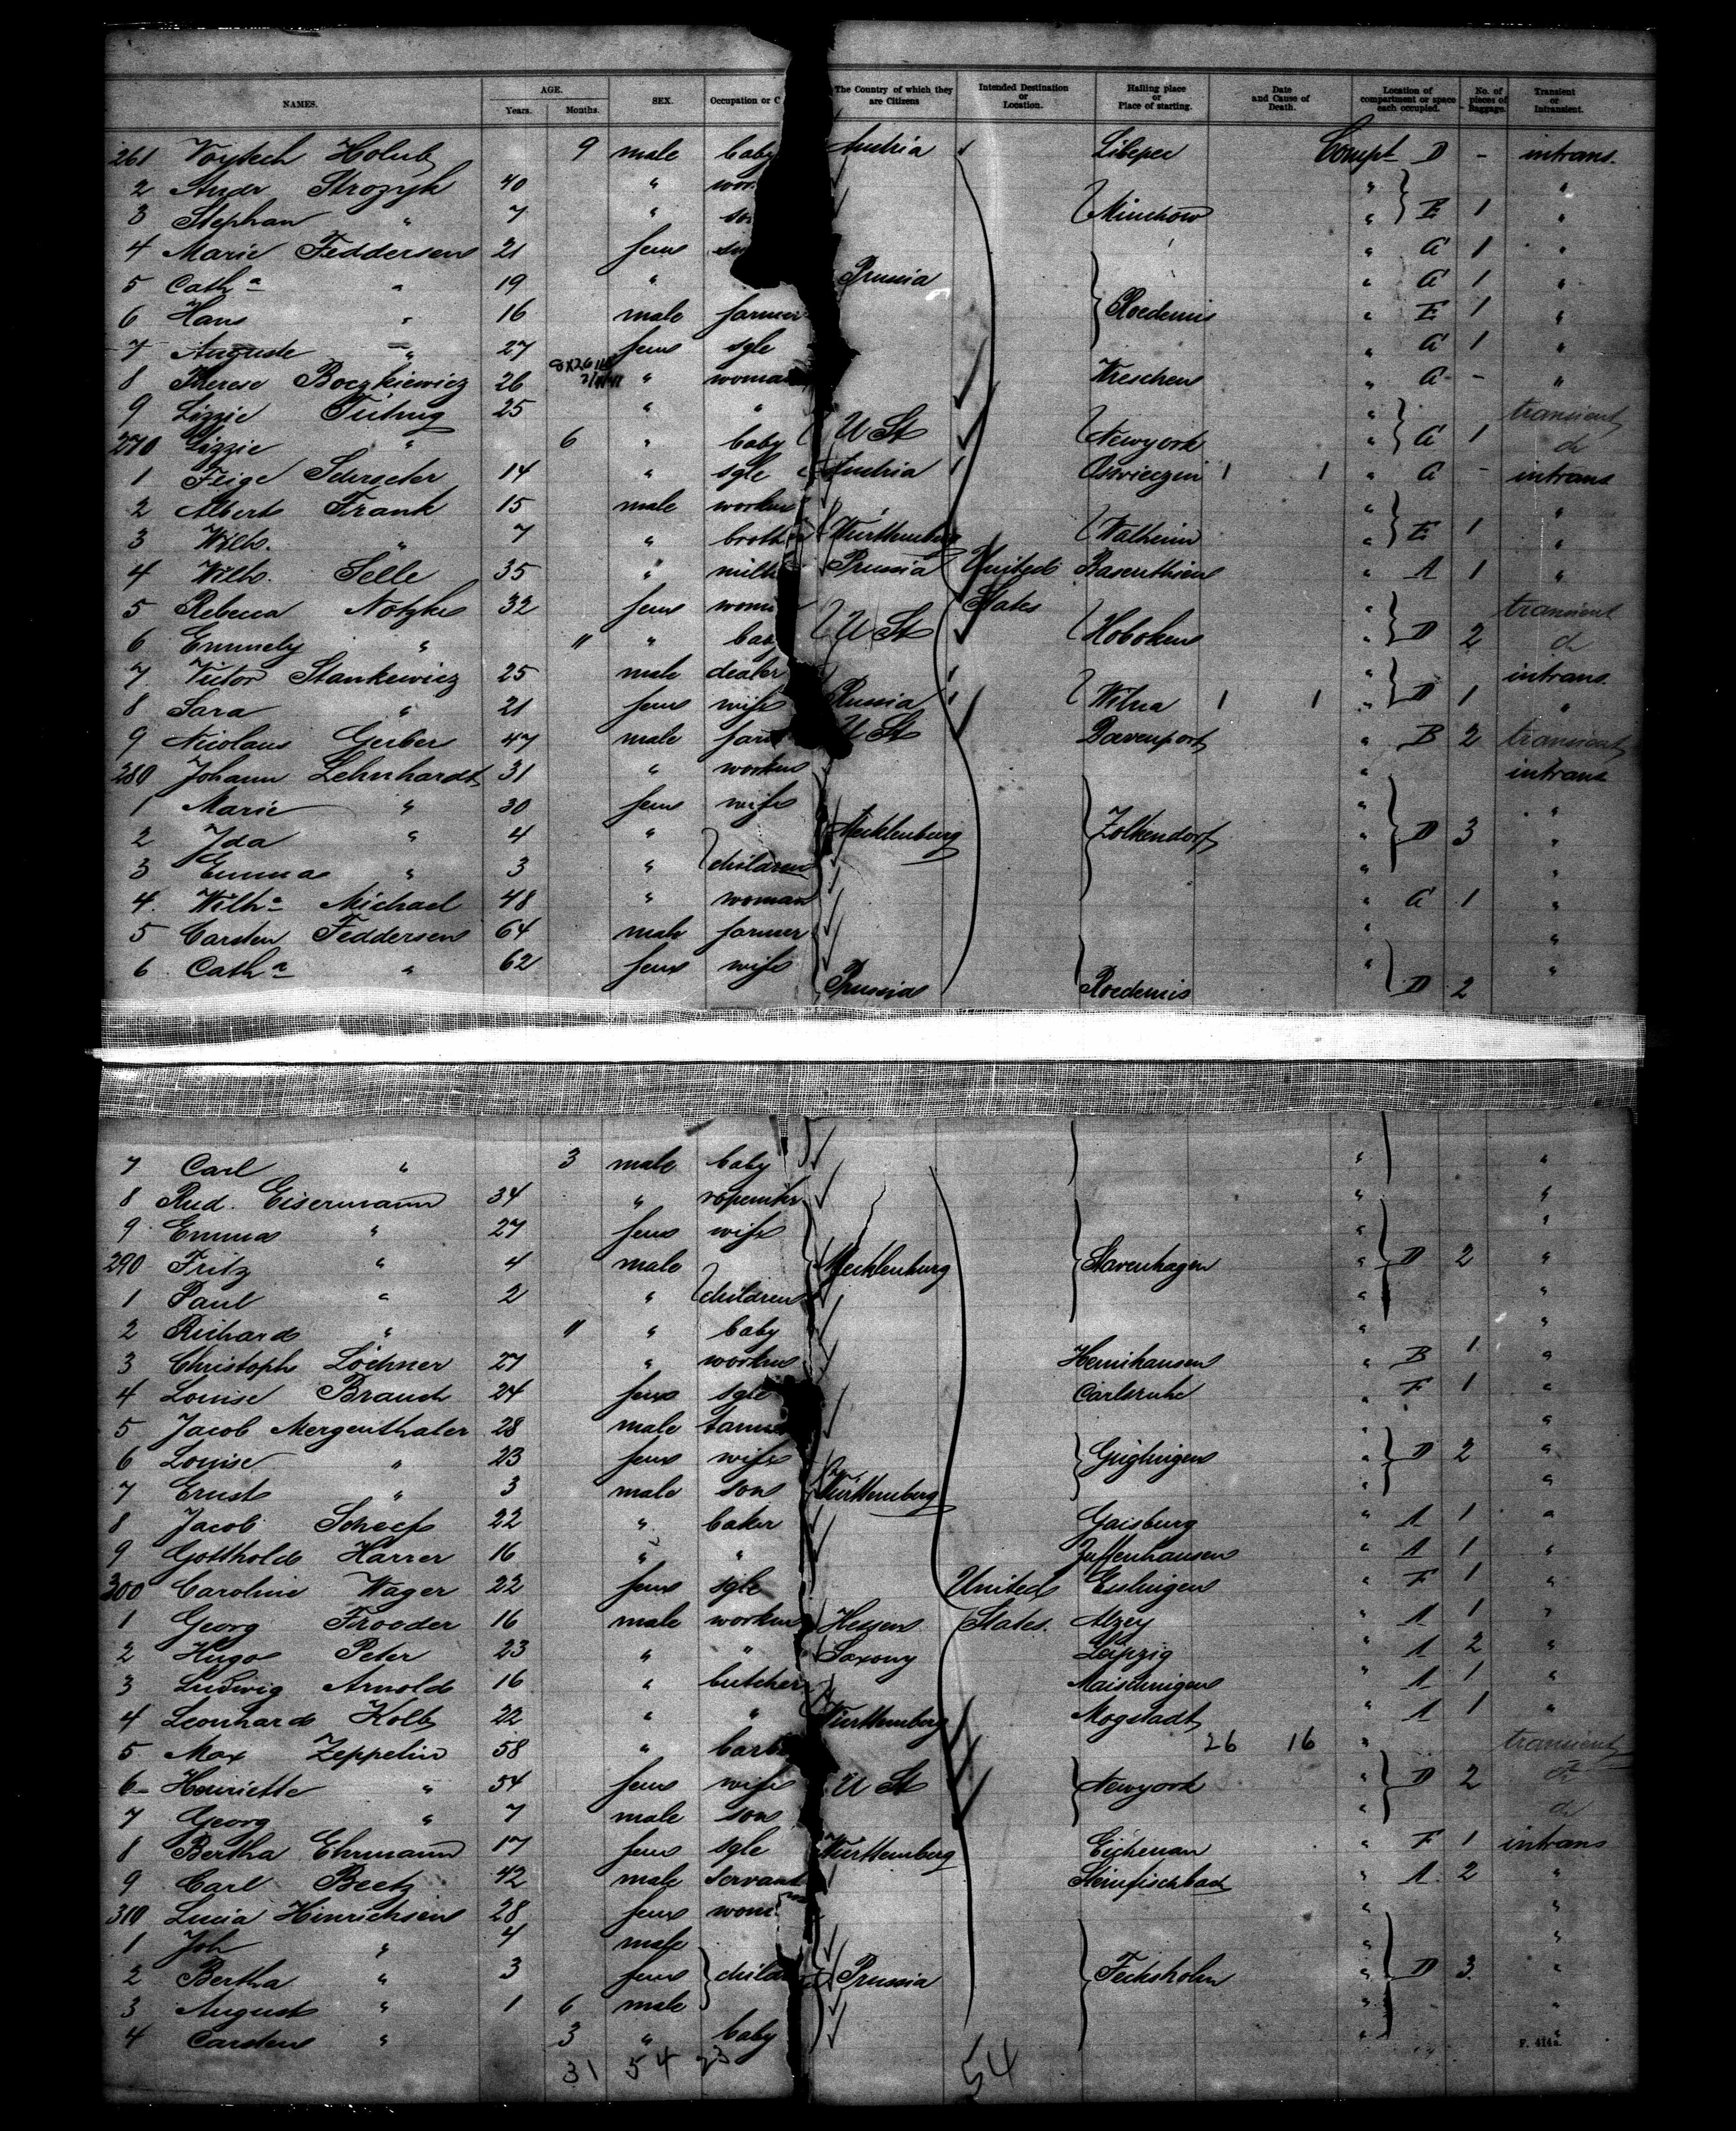 NAMES. AGE. Years. Months. SEX. Occupation or C The Country of which they are Citizens Intended Destination or Location. Hailing place or Place of starting. Date and Cause of Death. Location of compartment or space each occupied. No. of pieces of Baggage. Transient or Intransient.
261 Voytech Holub 9 male baby Austria Libepec Compt D - intrans.
2 Andr Strozyk 40 " wor " "
3 Stephan " 7 " so Minchow " E 1 "
4 Marie Feddersen 21 fem " A 1 "
5 Cath a " 19 " Prussia " A 1 "
6 Hans " 16 male farmer Roedemis " E 1 "
7 Auguste " 27 fem sgle " A 1 "
8 Therese Boczkiewicz 26 " woman Wreschen " A - "
9 Lizzie 25 " " " transient
270 Lizzie " 6 " baby U St Newyork " A 1 do
1 Feige Schroeter 14 " sgle Austria Oswieczin 1 1 " A - intrans
2 Albert Frank 15 male worker " "
3 Wilh. " 7 " broth Württemberg Walheim " E 1 "
4 Wilh. Selle 35 " mill Prussia United Baserithien " A 1 "
5 Rebecca Notzke 32 fem wom States " transient
6 Emmely " 11 " bab U St Hoboken " D 2 do
7 Victor Stankewicz 25 male dealer " intrans.
8 Sara " 21 fem wife Russia Wilna 1 1 " D 1 "
9 Nicolaus Gerber 47 male farm U St Davenport " B 2 transient
280 Johann Lehnhardt 31 " worker " intrans
1 Marie " 30 fem wife " "
2 Ida " 4 " Mecklenburg Zolkendorf " D 3 "
3 Emma " 3 " children " "
4. Wilh a Michael 48 " woman " A 1 "
5 Carsten Feddersen 64 male farmer " "
6 Cath a " 62 fem wife Prussia Roedemis " D 2 "
7 Carl " 3 male baby " "
8 Rud. Eisermann 34 " ropemkr " "
9 Emma " 27 fem wife " "
290 Fritz " 4 male Mecklenburg Stavenhagen " D 2 "
1 Paul " 2 " children " "
2 Richard " 11 " baby " "
3 Christoph Löchner 27 " worker Hemihausen " B 1 "
4 Louise Brauch 24 fem sgle Carlsruhe " F 1 "
5 Jacob Mergenthaler 28 male tanner "
6 Louise " 23 fem wife Güglingen " D 2 "
7 Ernst " 3 male son Württemberg " "
8 Jacob Scheef 22 " baker Gaisburg " A 1 "
9 Gotthold Harrer 16 " " Zuffenhausen " A 1 "
300 Caroline Wager 22 fem sgle United Eislingen " F 1 "
1 Georg Frooder 16 male worker Hessen States. Alzey " A 1 "
2 Hugo Peter 23 " " Saxony Leipzig " A 2 "
3 Ludwig Arnold 16 " butcher Maichingen " A 1 "
4 Leonhard Kolb 22 " " Württemberg Mogstadt " A 1 "
5 Max Zeppelin 58 " barb 26 16 " transient
6 Henriette " 54 fem wife U St Newyork " D 2 do
7 Georg " 7 male son " do
8 Bertha Ehrmann 17 fem sgle Württemberg Eichenau " F 1 intrans
9 Carl Beetz 42 male servant Steinfischbach " A 2 "
310 Lucia Hinrichsen 28 fem wom " "
1 Joh " 4 male " "
2 Bertha " 3 fem child Prussia Fecksholm " D 3 "
3 August " 1 6 male " "
4 Carsten " 3 " baby " "
31 54 23 54
F. 414a.